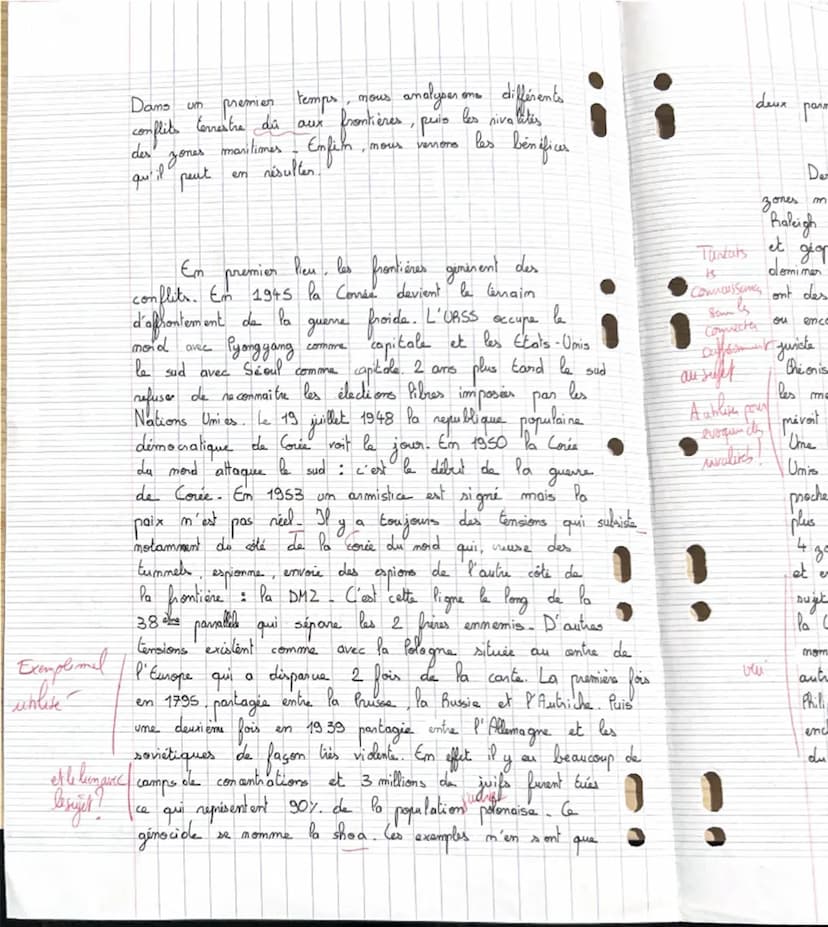 Dans un premier temps, nous analyserons différents
conflits terrestre dû aux frontières, puis les rivalités
des zones maritimes. Enfin, nous verrons les bénéfices
qu'il peut en résulter.
En premier lieu, les frontières génèrent des
conflits. En 1945 la Corée devient le terrain
d'affrontement de la guerre froide. L'URSS occupe le
nord avec Pyongyang comme capitale et les Etats-Unis
le sud avec Séoul comme capitale. 2 ans plus tard le sud
refuser de reconnaitre les élections libres imposées par les
Nations Unies. Le 19 juillet 1948 la republique populaine
démocratique de Corée voit le jour. En 1950 la Corée
du nord attaque le sud : c'est le début de la guerre
de Corée. En 1953 un armistice est signé mais la
paix n'est pas réel. Il y a toujours des tensions qui subsiste
notamment du côté de la Corée du nord qui, creuse des
tunnels, espionne, envoie des espions de l'autre côté de
la frontière : la DMZ. C'est cette ligne le long de la
38ème parallèle qui sépare les 2 frères ennemis. D'autres
tensions existent comme avec la Pologne située au centre de
l'Europe qui a disparue 2 fois de la carte. La première fois
en 1795, partagée entre la Prusse, la Russie et l'Autriche. Puis
une deuxième fois en 1939 partagée entre l'Allemagne et les
soviétiques de façon très violente. En effet il y eu beaucoup de
camps de concentrations et 3 millions de juifs furent tués
ce qui représentent 90% de la population polonaise. Ce
juive
génocide se nomme la shoa. Ces exemples n'en sont que
Exemple mal
utilisé
et le lien avec
le sujet?
connaissances
sans les
connecter
suffisamment
au sujet
A utiliser pour
évoquer des
rivalités!
deux
zones m
Raleigh
et géop
dominer
ont des
ou enco
juriste
les me
prévoit
Une
Unis
proche
plus
4 zo
et e
sujet
la
autr
Phili
enc
du